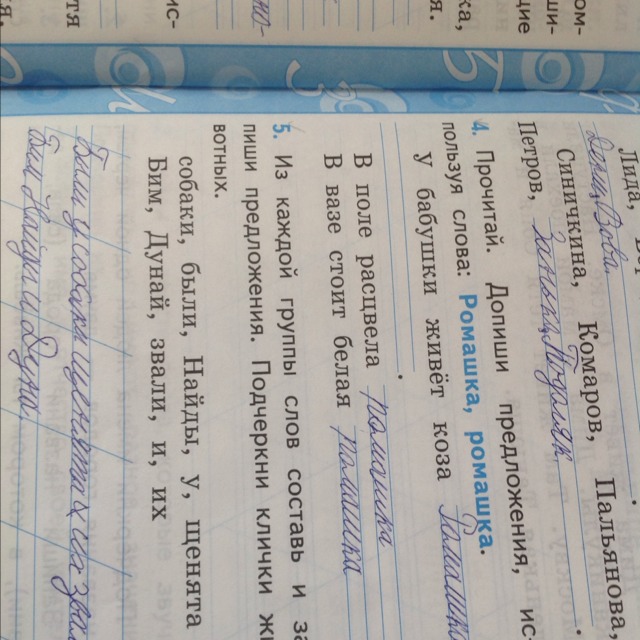 Лида,
Синичкина, Комаров, Пальянова,
Петров,
4. Прочитай. Допиши предложения, ис-
пользуя слова: Ромашка, ромашка.
У бабушки живёт коза Ромашка
.
В поле расцвела ромашка
В вазе стоит белая ромашка
5. Из каждой группы слов составь и за
пиши предложения. Подчеркни клички жи
вотных.
собаки, были, Найды, у, щенята
Бим, Дунай, звали, и, их
Были у собаки щенята их зва